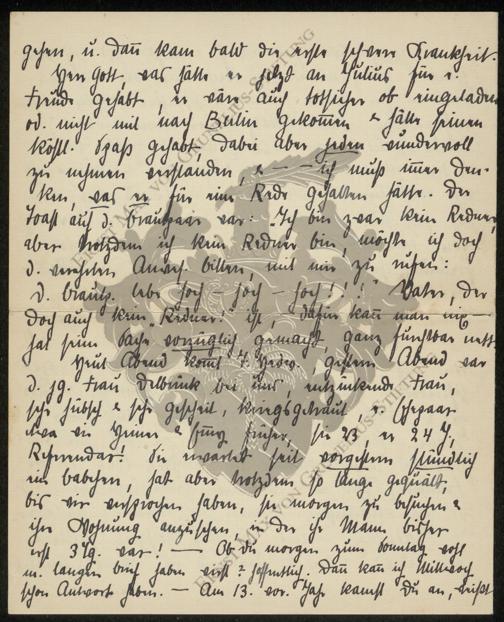 gehen, u. dann kam bald die erste schwere Krankheit.
Herr Gott, was hätte er jetzt an Julius für e.
Freude gehabt, er wäre auch totsicher ob eingeladen
od. nicht mit nach Berlin gekommen & hätte seinen
köstl. Spaß gehabt, dabei aber jeden wundervoll
zu nehmen verstanden & — ich muß immer den-
ken, was er für eine Rede gehalten hätte. Der
Toast auf d. Brautpaar war: "Ich bin zwar kein Redner,
aber trotzdem ich kein Redner bin, möchte ich doch
d. verehrten Anwes. bitten, mit mir zu rufen:
d. Brautp. lebe hoch – hoch – hoch!" Vater, der
doch auch kein "Redner" ist, dafür kann man nix
hat seine Sache vorzüglich gemacht, ganz furchtbar nett.
Heut Abend kommt gestern Abend war
d. jg. Frau Delbrück bei uns, entzückende Frau,
sehr hübsch & sehr gescheit, kriegsgetraut, e. Ehepaar
wie & früher, sie 23, er 24 J,
Referendar! Sie erwartet seit vorgestern stündlich
ein Babychen, hat aber trotzdem so lange gequält,
bis wir versprochen haben, sie morgen zu besuchen &
ihre Wohnung anzusehen, in der ihr Mann bisher
erst 3 Tg. war! — Ob du morgen zum Sonntag wohl
m. langen Brief haben wirst? hoffentlich. Dann kann ich Mittwoch
schon Antwort haben. — Am 13. vor. Jahr kamst Du an,